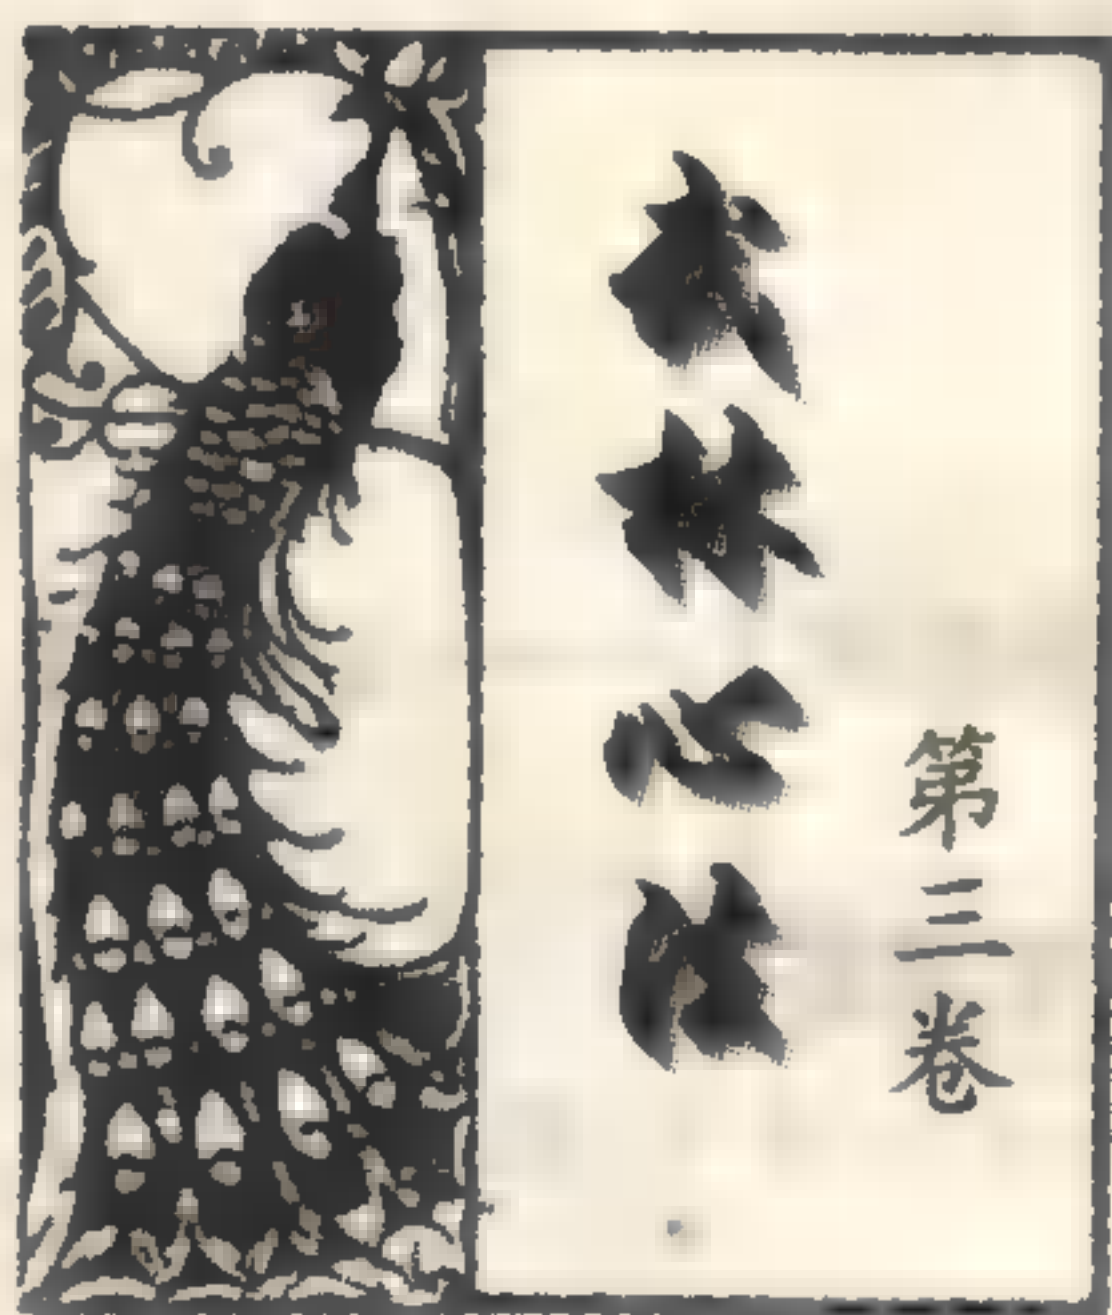 武林心法
第三卷